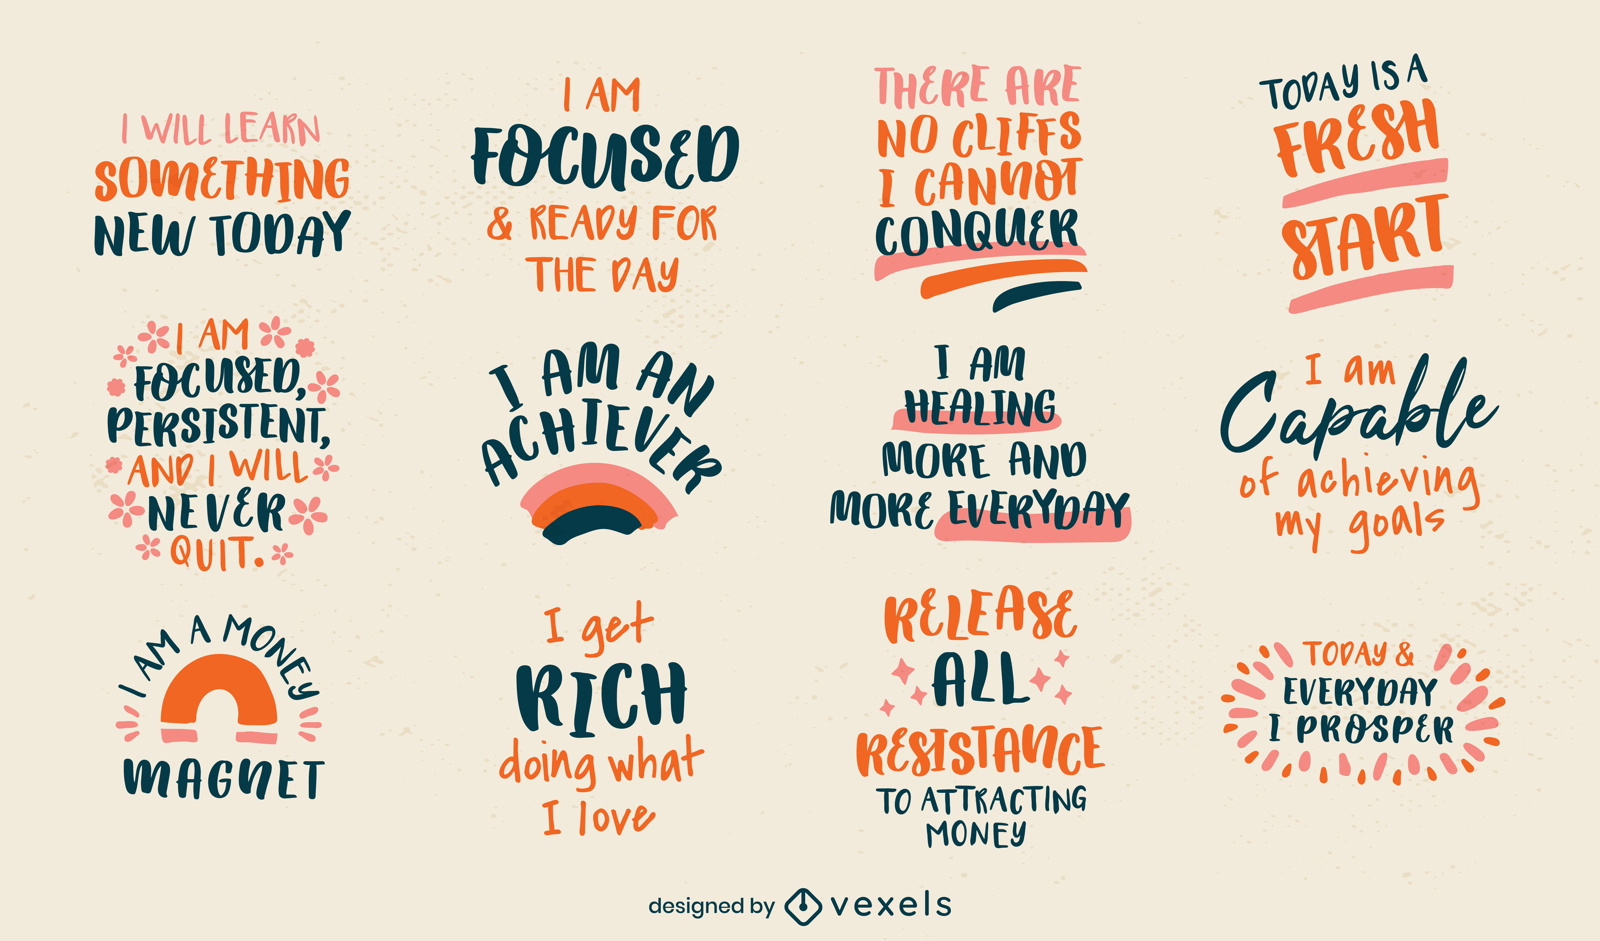 I WILL LEARN
SOMETHING
NEW TODAY
I AM
FOCUSED
& READY FOR
THE DAY
THERE ARE
NO CLIFFS
I CANNOT
CONQUER
TODAY IS A
FRESH
START
I AM
FOCUSED,
PERSISTENT,
AND I WILL
NEVER
QUIT.
I AM AN
ACHIEVER
I AM
HEALING
MORE AND
MORE EVERYDAY
I am
Capable
of achieving
my goals
I AM A MONEY
MAGNET
I get
RICH
doing what
I love
RELEASE
ALL
RESISTANCE
TO ATTRACTING
MONEY
TODAY &
EVERYDAY
I PROSPER
designed by vexels